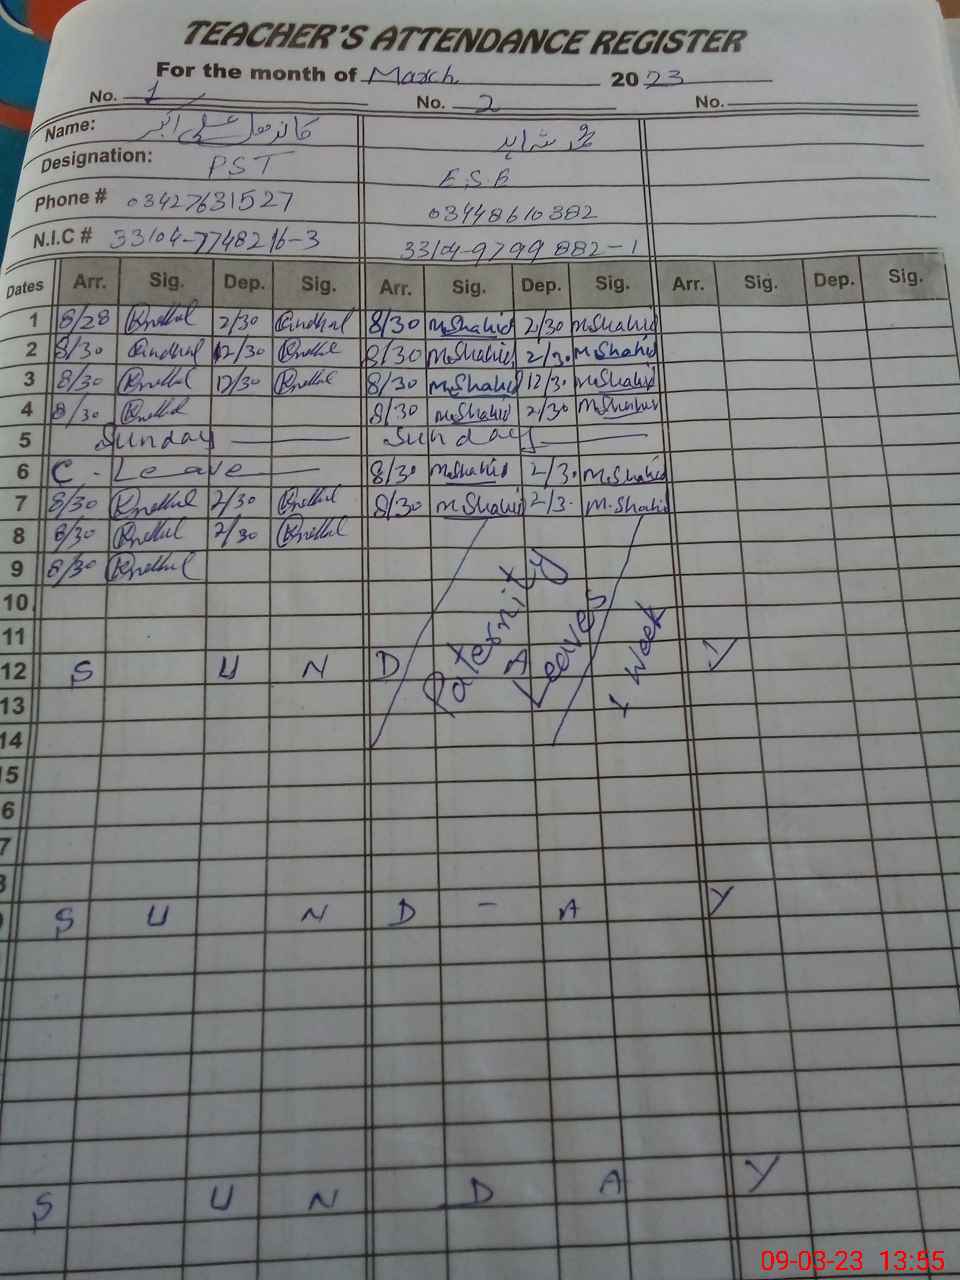 TEACHER'S ATTENDANCE REGISTER
For the month of March 2023
No. 1 No. 2 No.
Name: علی اکبر محمد شاہد
Designation: PST E.S.E
Phone # 03427631527 03448610382
N.I.C # 33104-7748216-3 33104-9799882-1
Dates Arr. Sig. Dep. Sig. Arr. Sig. Dep. Sig. Arr. Sig. Dep. Sig.
1 8/28 2/30 8/30 M.Shahid 2/30 M.Shahid
2 8/30 12/30 8/30 M.Shahid 2/3. M.Shahid
3 8/30 12/30 8/30 M.Shahid 12/3. M.Shahid
4 8/30 8/30 M.Shahid 2/30 M.Shahid
5 Sunday Sunday
6 C. Leave 8/30 M.Shahid 2/3. M.Shahid
7 8/30 2/30 8/30 M.Shahid 2/3. M.Shahid
8 8/30 2/30
9 8/30
10
11
12 S U N D A Y
Paternity
Leaves
1 Week
13
14
15
6
7
S U N D - A Y
S U N D A Y
09-03-23 13:55